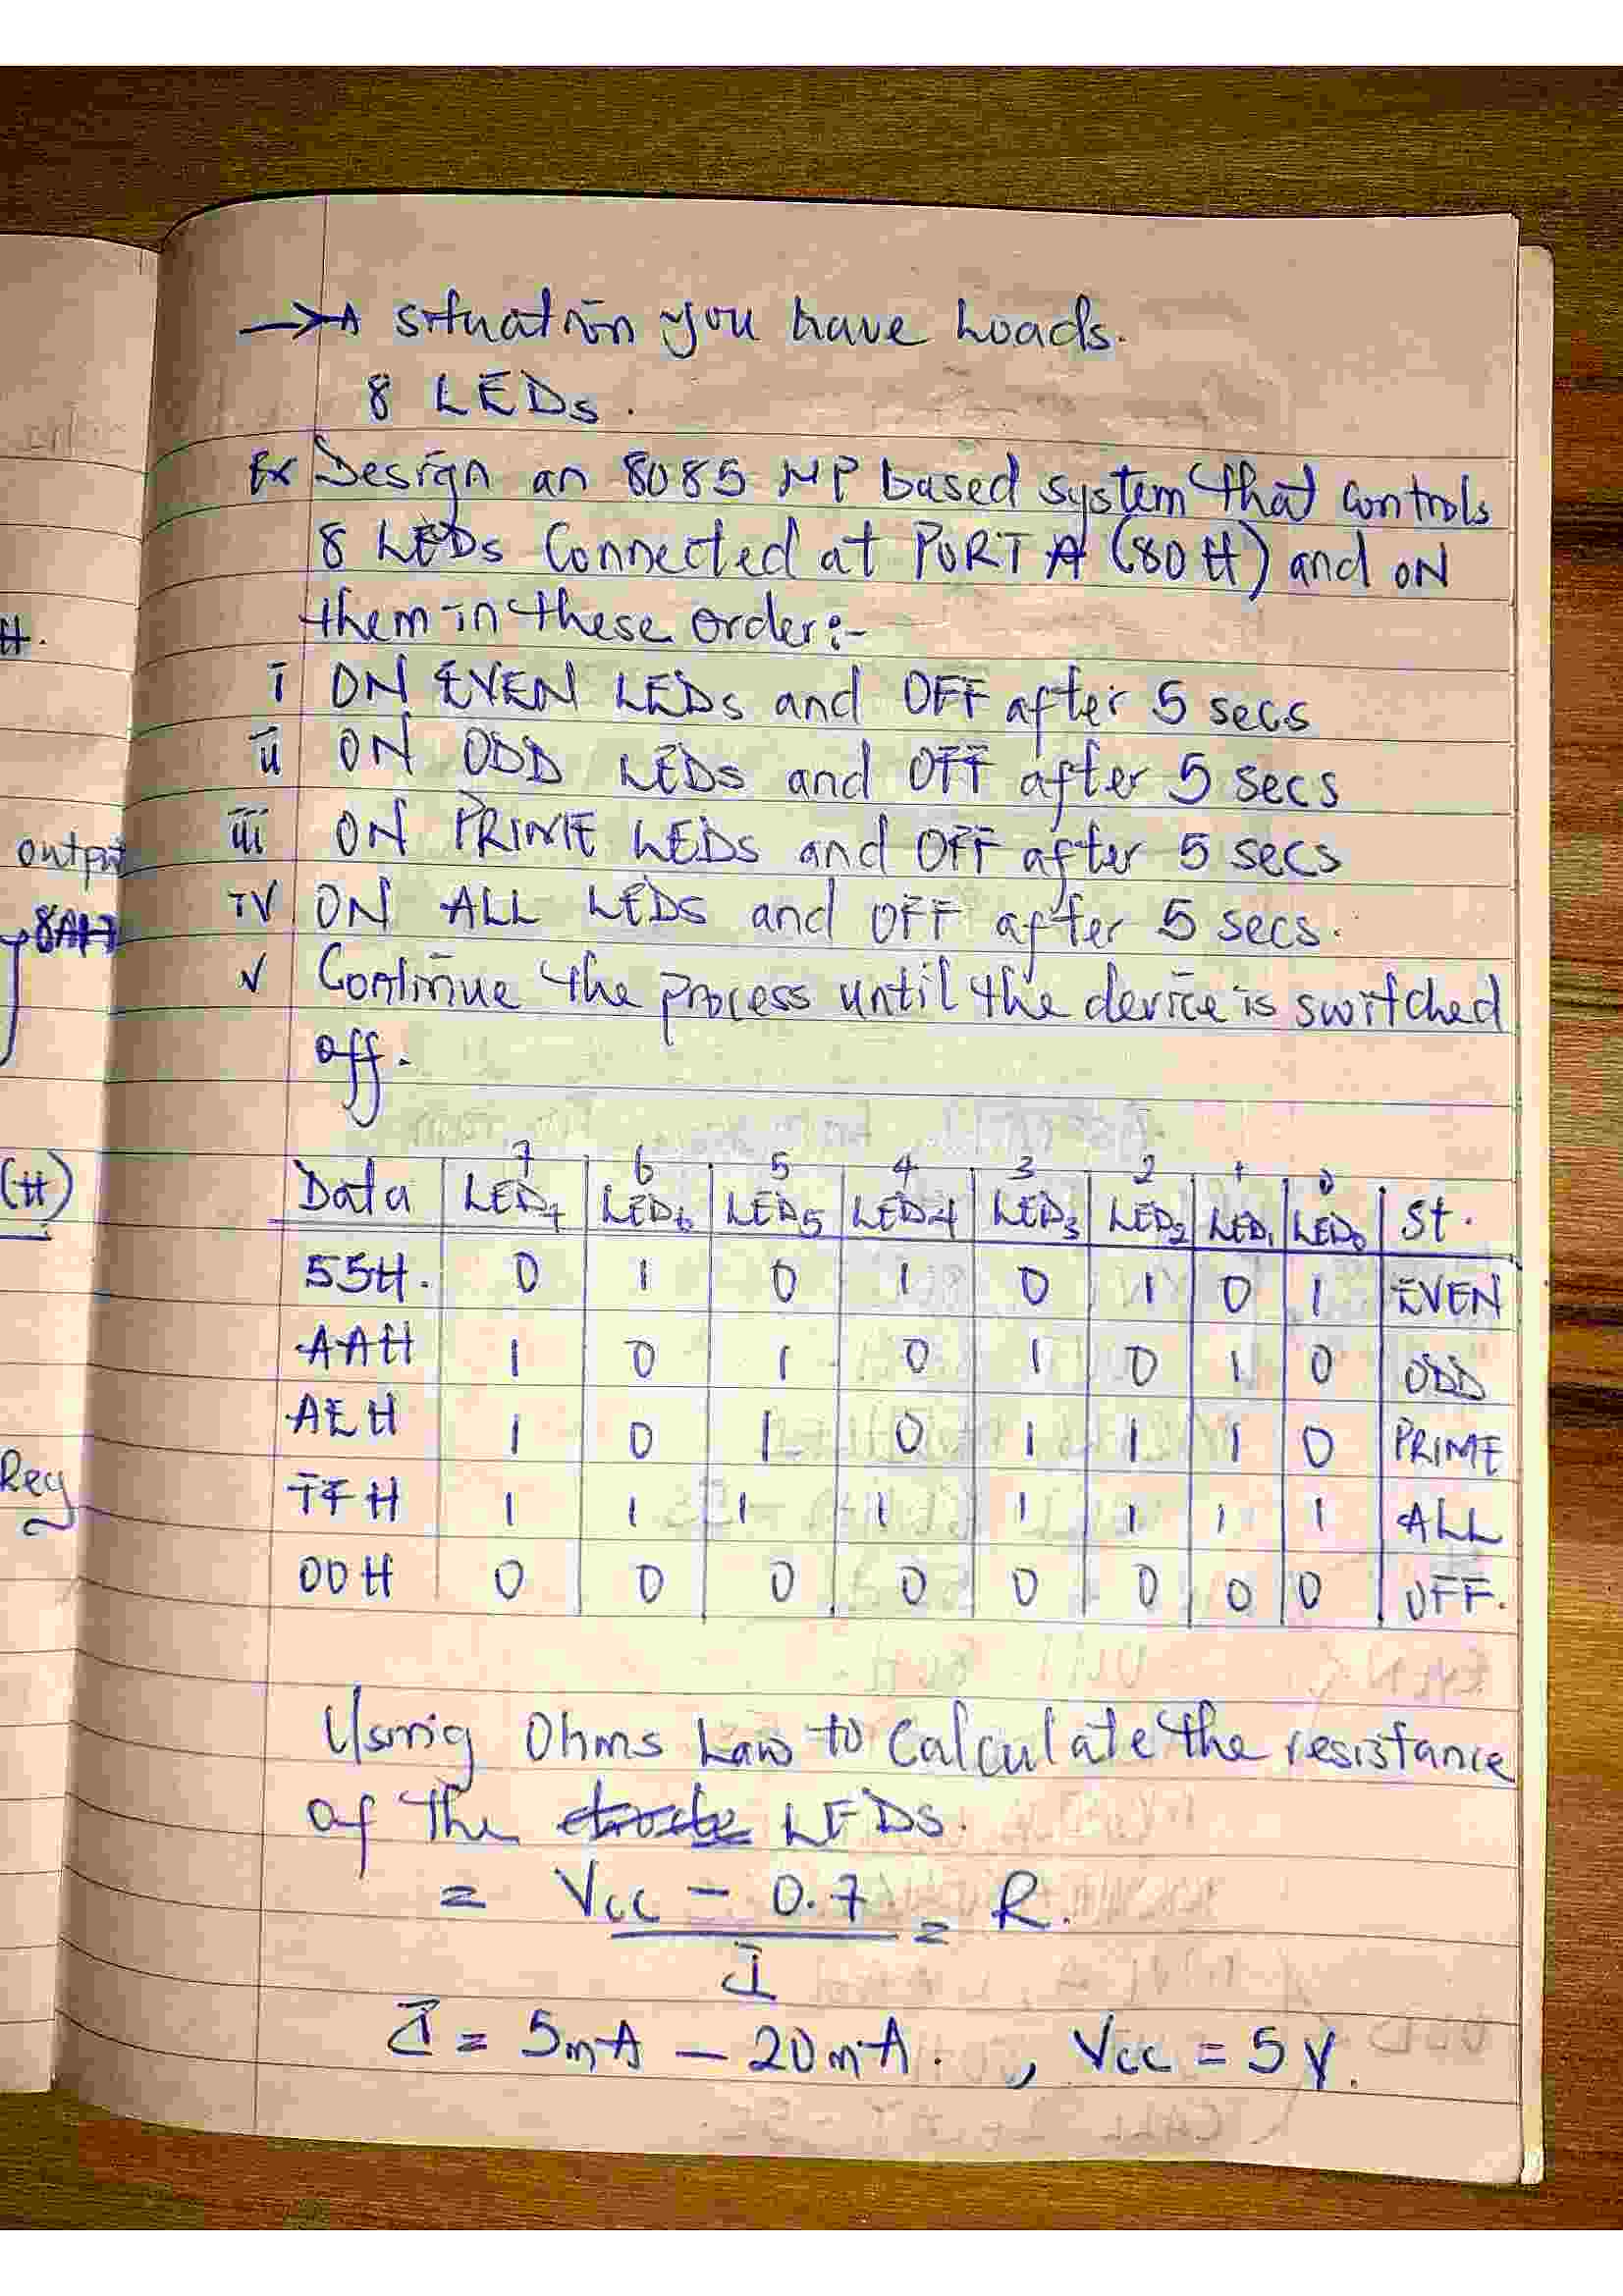 → A situation you have Loads.
8 LEDs.
Ex Design an 8085 MP based system that controls
8 LEDs Connected at PORT A (80H) and ON
them in these order:-
i ON EVEN LEDs and OFF after 5 secs
ii ON ODD LEDs and OFF after 5 secs
iii ON PRIME LEDs and OFF after 5 secs
iv ON ALL LEDs and OFF after 5 secs.
v Continue the process until the device is switched
off.
7 6 5 4 3 2 1 0
Data LED7 LED6 LED5 LED4 LED3 LED2 LED1 LED0 St.
55H. 0 1 0 1 0 1 0 1 EVEN
AAH 1 0 1 0 1 0 1 0 ODD
AEH 1 0 1 0 1 1 1 0 PRIME
FFH 1 1 1 1 1 1 1 1 ALL
00H 0 0 0 0 0 0 0 0 OFF.
Using Ohms Law to Calculate the resistance
of the LEDS.
= Vcc - 0.7 / I = R.
I = 5mA - 20mA. , Vcc = 5V.
H.
output
8AH
(H)
Reg